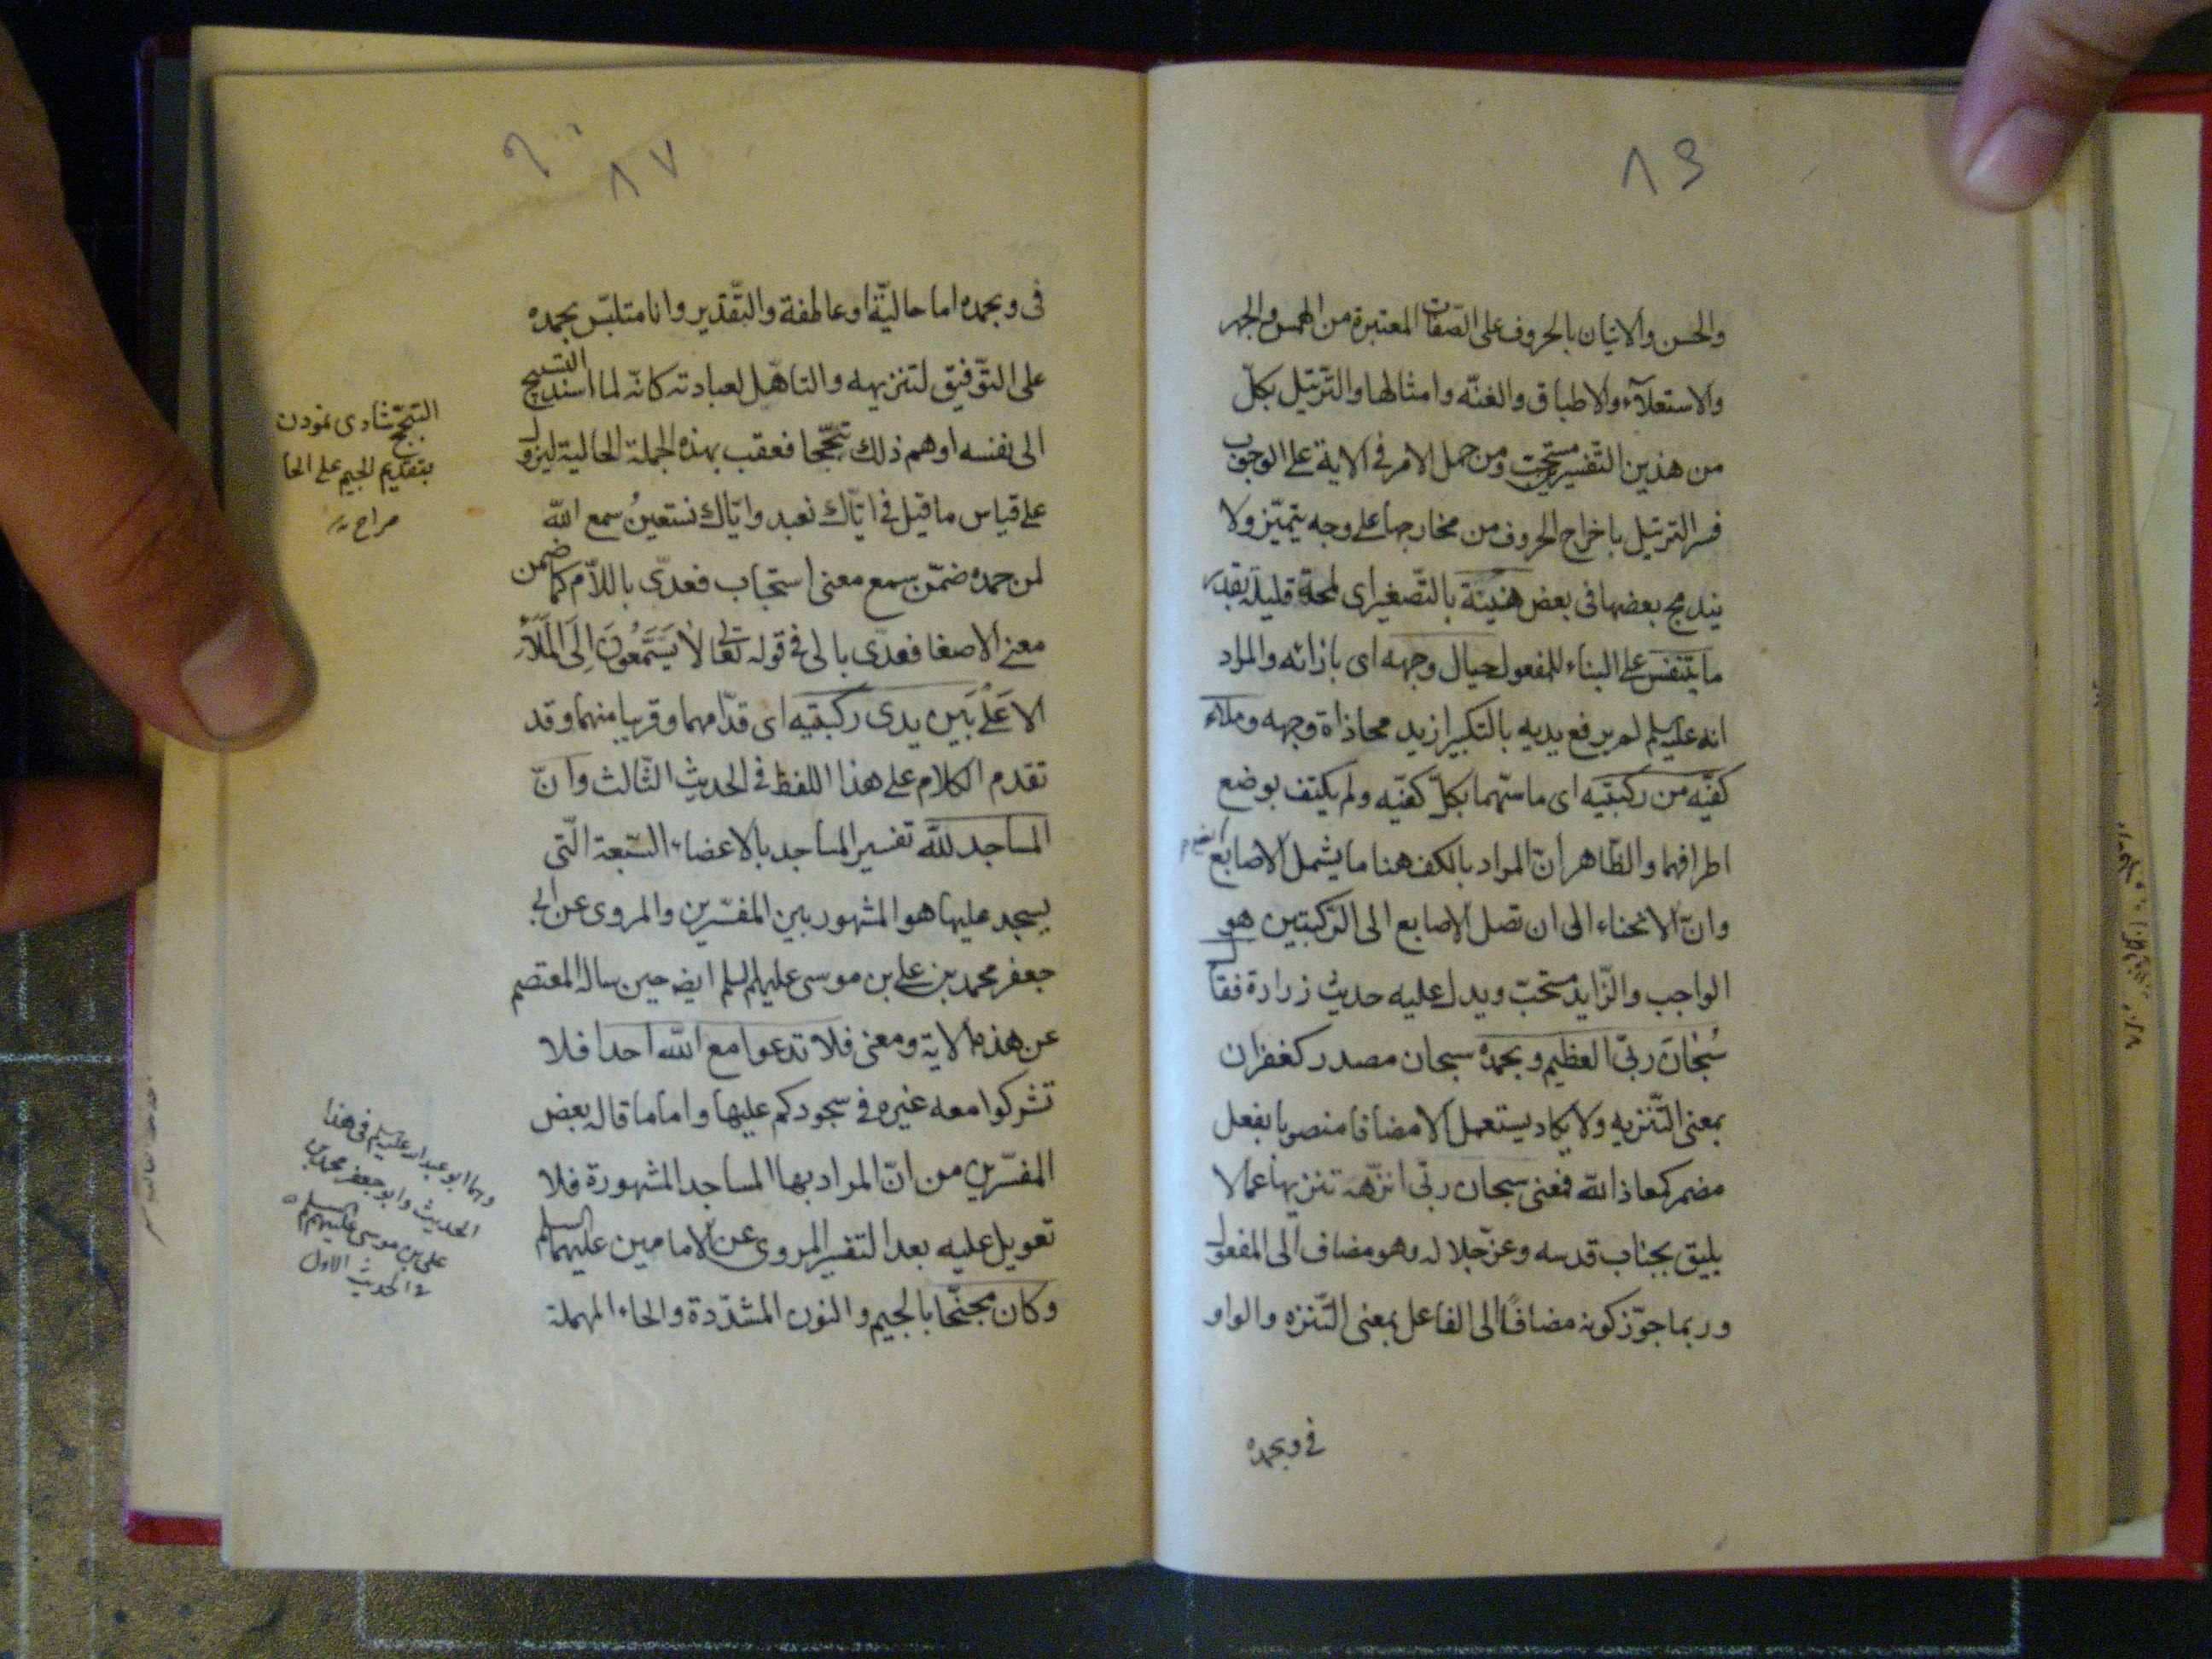 ٨٦
والحسن والاتيان بالحروف على الصّفات المعتبرة من الهمس والجهر
والاستعلآء والاطباق والغنّه وامثالها والتّرتيل بكلّ
من هذين التّفسيرين مستحبّ ومن حمل الامر فى الاية على الوجوب
فسر الترتيل باخراج الحروف من مخارجها على وجه يتميّز ولا
يندمج بعضها فى بعض هنيئة بالتّصغير اى لمحة قليلة بقدر
ما يتنفس على البناء للمفعول حيال وجهه اى بازائه والمراد
انه عليه السلم لم يرفع يديه بالتكبير ازيد محاذاة وجهه وملاء
كفّيه من ركبتيه اى ماسّهما بكلّ كفّيه ولم يكتف بوضع
اطرافهما والظّاهر انّ المراد بالكف هنا ما يشمل الاصابع
وانّ الانحناء الى ان تصل الاصابع الى الرّكبتين هو
الواجب والزّايد مستحبّ ويدل عليه حديث زرارة فقال
سُبْحٰانَ ربّى العظيم وبحمده سبحان مصدر كغفران
بمعنى التّنزيه ولا يكاد يستعمل الا مضافا منصوبا بفعل
مضمر كمعاذ الله فمعنى سبحان ربّى انزّهه تنزيها عما لا
يليق بجناب قدسه وعزّ جلاله وهو مضاف الى المفعول
وربما جوّز كونه مضافًا الى الفاعل بمعنى التّنزه والواو
فى وبحمده
٨٧
فى وبحمده اما حاليّة او عاطفة والتّقدير وانا متلبّس بحمده
على التّوفيق لتنزيهه والتاهّل لعبادته كانّه لما اسند التسبيح
الى نفسه اوهم ذلك تبجّحا فعقب بهذه الجملة الحالية ليزول
على قياس ما قيل فى ايّاك نعبد وايّاك نستعينُ سمع اللّه
لمن حمده ضمّن سمع معنى استجاب فعدّى باللاّم كما ضمن
معنى الاصغا فعدّى بالى فى قوله تعالى لٰا يَسَّمَّعُونَ اِلَى الْمَلَأِ
الاعَلْى بَين يدى ركبتيه اى قدّامهما وقريبا منهما وقد
تقدم الكلام على هذا اللفظ فى الحديث الثّالث وانّ
المساجد للّه تفسير المساجد بالاعضاء السّبعة الّتى
يسجد عليها هو المشهور بين المفسّرين والمروى عن ابى
جعفر محمد بن على بن موسى عليهم السلم ايضا حين ساله المعتصم
عن هذه الاية ومعنى فلا تدعوا مع اللّه احدا فلا
تشركوا معه غيره فى سجودكم عليها واما ما قاله بعض
المفسّرين من انّ المراد بها المساجد المشهورة فلا
تعويل عليه بعد التفسير المروى عن الامامين عليهما السلم
وكان مجنّحا بالجيم والنون المشدّدة والحاء المهملة
التبجّح شادى نمودن
بتقديم الجيم على الحا
صراح
وهما ابو عبد الله عليه السلم فى هذا
الحديث وابو جعفر محمد بن
على بن موسى عليهم السلم
فى الحديث الاول